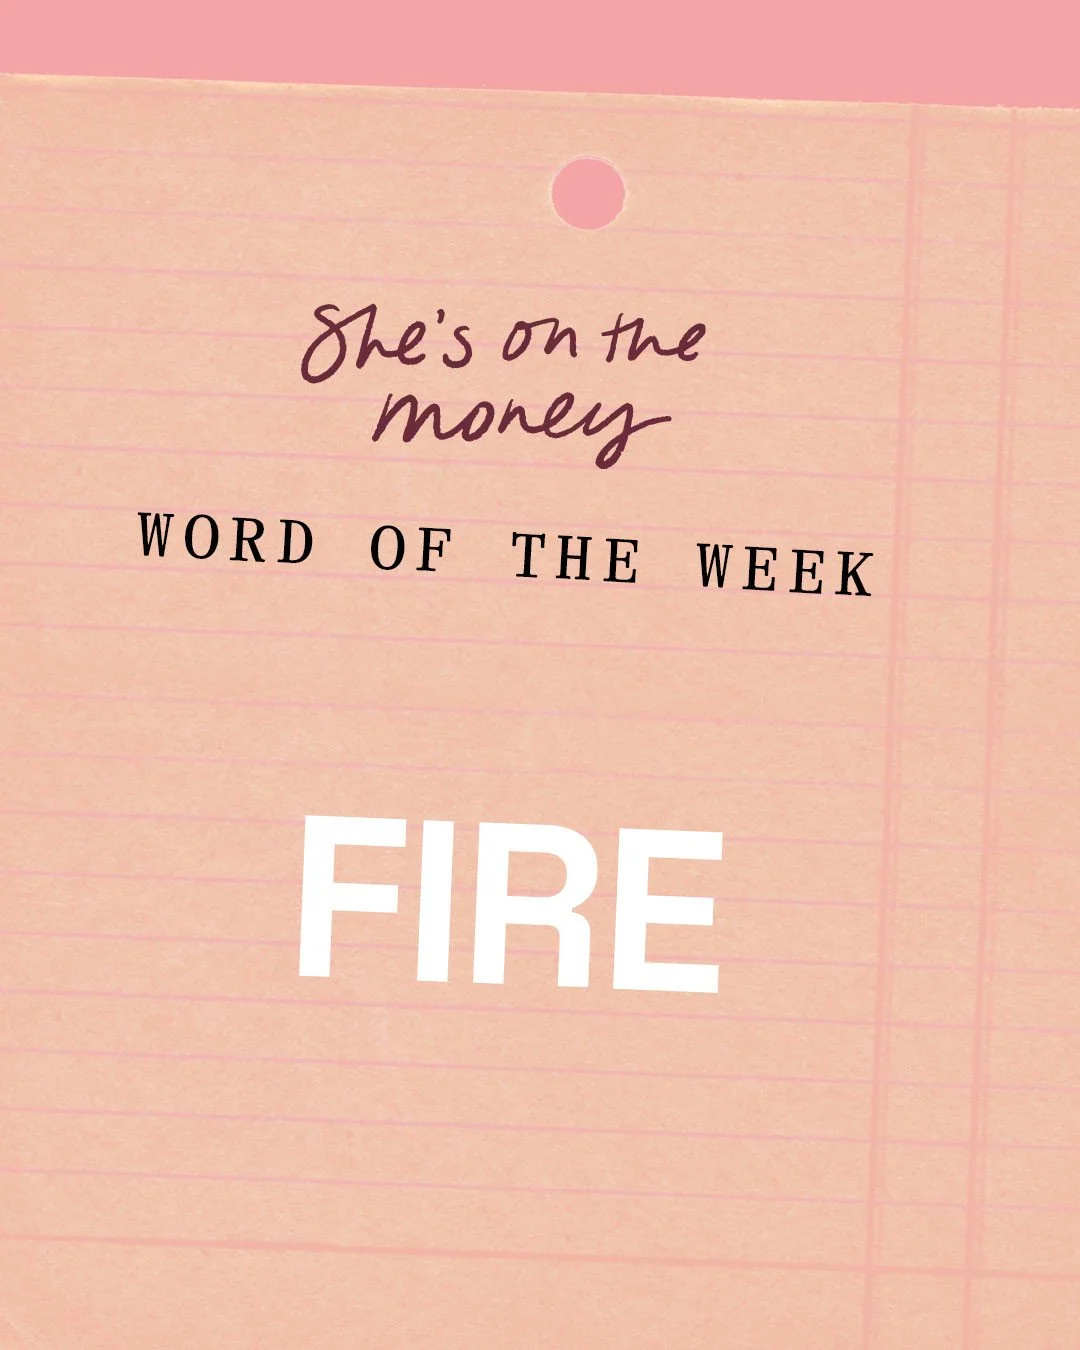 She's on the
money
WORD OF THE WEEK
FIRE